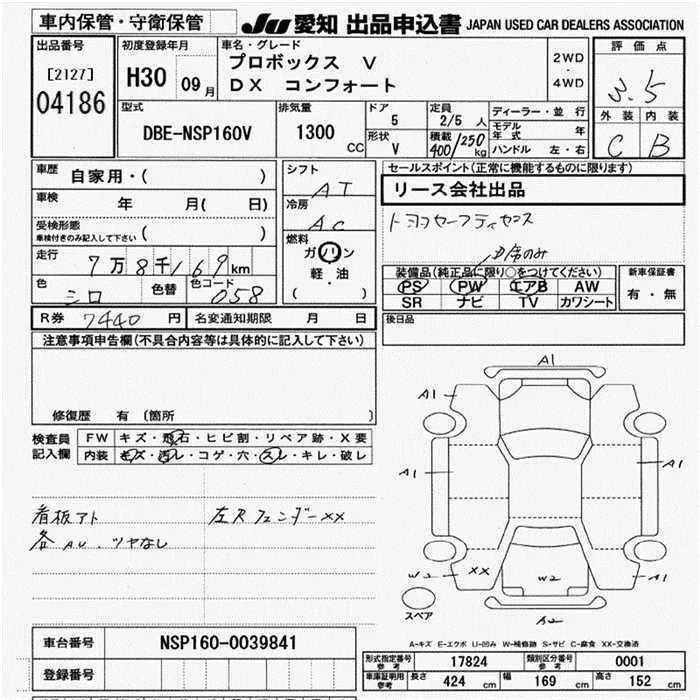 車内保管・守衛保管
JU 愛知 出品申込書 JAPAN USED CAR DEALERS ASSOCIATION
出品番号 [2127] 04186
初度登録年月 H30 09月
車名・グレード プロボックス V
DX コンフォート
2WD・4WD
評価点 3.5
外装 内装
C B
型式 DBE-NSP160V
排気量 1300 CC
ドア 5
定員 2/5 人
形状 V
積載 400/250kg
ディーラー・並行
モデル年式 年
ハンドル 左・右
車歴 自家用・( )
車検 年 月( 日)
受検形態 車検付きのみ記入して下さい ( )
走行 7万8千169km
色 シロ 色替 色コード 058
シフト AT
冷房 AC
燃料 ガソリン
軽・油
( )
セールスポイント(正常に機能するものに限ります)
リース会社出品
トヨタセーフティセンス
装備品(純正品に限り○をつけてください)
PS PW エアB AW
SR ナビ TV カワシート
新車保証書
有・無
R券 7440 円 名変通知期限 月 日
後日品
注意事項申告欄(不具合内容等は具体的に記入して下さい)
修復歴 有 (箇所 )
検査員記入欄
FW キズ・飛石・ヒビ割・リペア跡・X要
内装 キズ・汚レ・コゲ・穴・スレ・キレ・破レ
看板アト
各AU.ツヤなし
左Rフェンダー××
A1
A1
A1
A1
A1
W2 XX W2 A1
A2
スペア
A-キズ E-エクボ U-凹み W-補修跡 S-サビ C-腐食 XX-交換済
車台番号 NSP160-0039841
登録番号
形式指定番号 参考 17824 類別区分番号 参考 0001
車庫証明用 参考 長さ 424 cm 幅 169 cm 高さ 152 cm